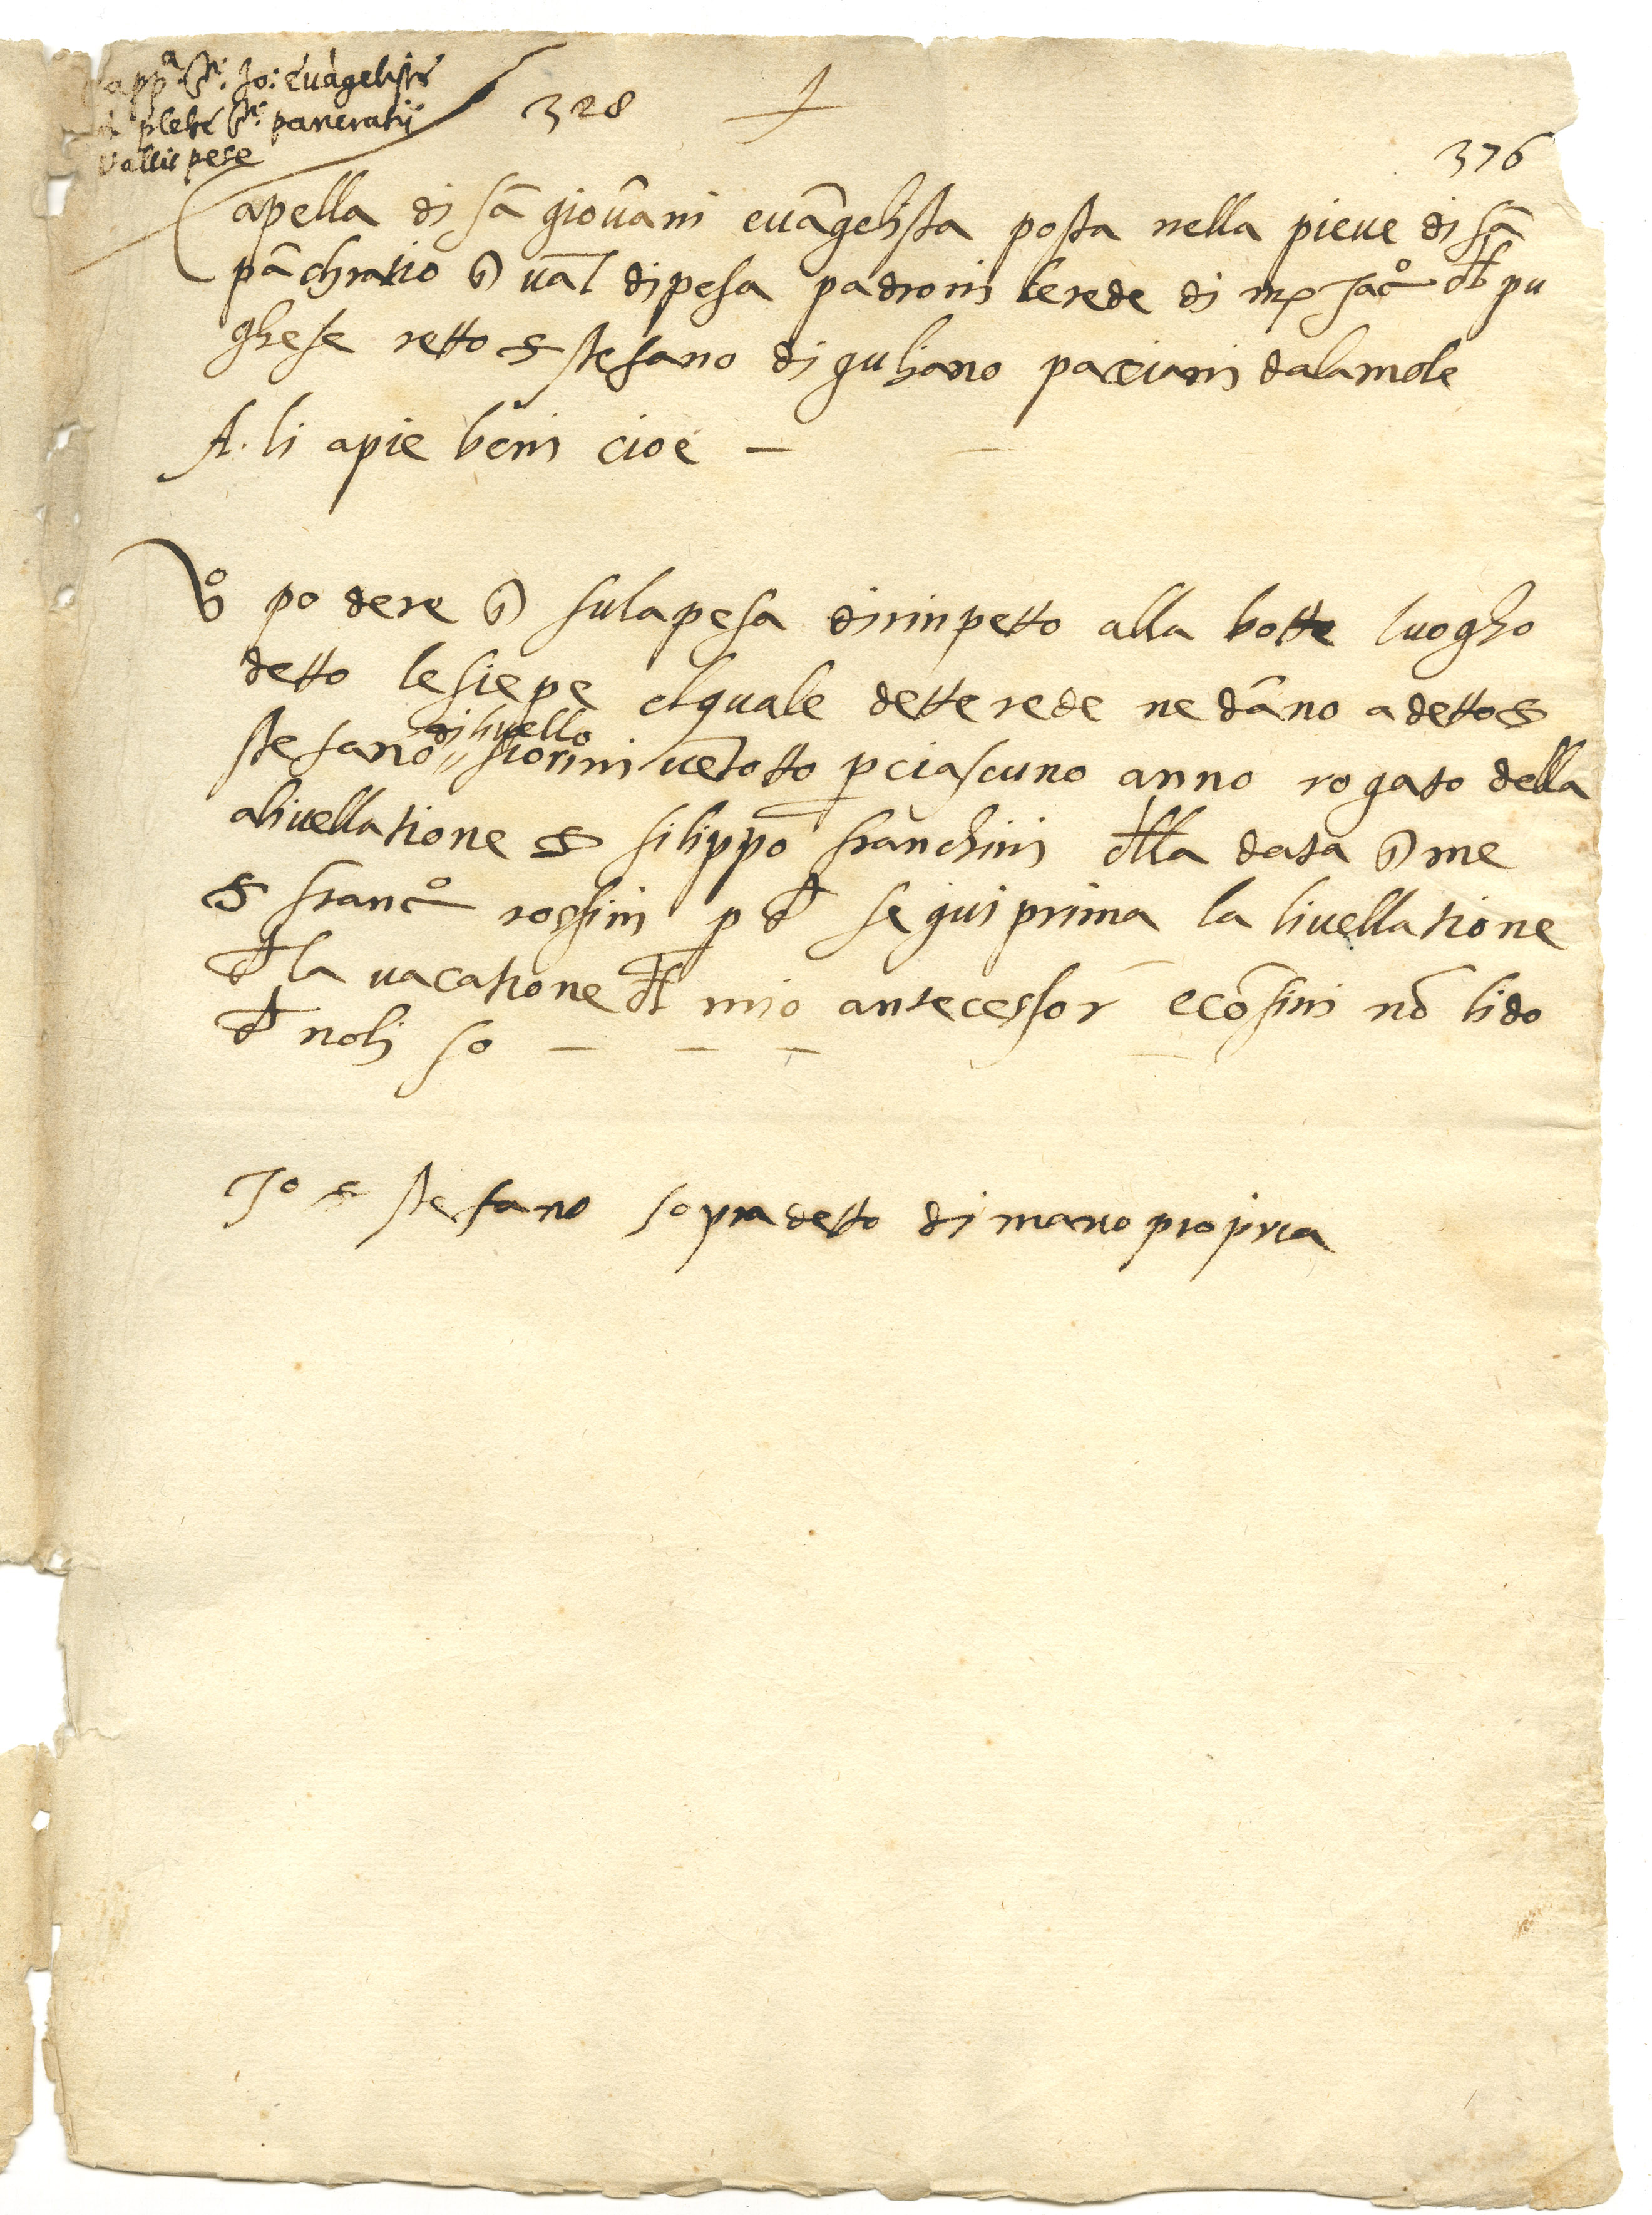 capp.a S.ti Jo: Evãgeliste
in plebe S.ti pancratij
Vallis pese
328
376
Capella di sã giovãni evãgelista posta nella pieve di sã
pãchratio ĩ val dipesa padroni lerede di mͬ Jacº del pu
gliese retto s stefano di guliano paciani dalamole
A li apie beni cioe —
Uº podere ĩ sulapesa dirinpetto alla botte luogho
detto lesiepe elquale detterede ne dãno a detto s
di livello
stefano fiorini vẽtotto p ciascuno anno rogato della
alivellatione s filippo franchini della data ĩ me
s francº rossini p che segui prima la livellatione
che la vacatione del mio antecessor e cõfini nõ li do
che noli so — — —
Jo s stefano sopradetto di mano propria